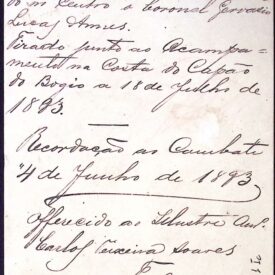 do m Centro o Coronel Gervasio
Lucas Annes.
Tirado junto ao Acampa-
mento na Costa do Capão
do Bogio a 18 de Julho de
1893.
Recordação ao Combate
4 de Junho de 1893
Offerecido ao Illustre Am.º
Carlos Teixeira Soares